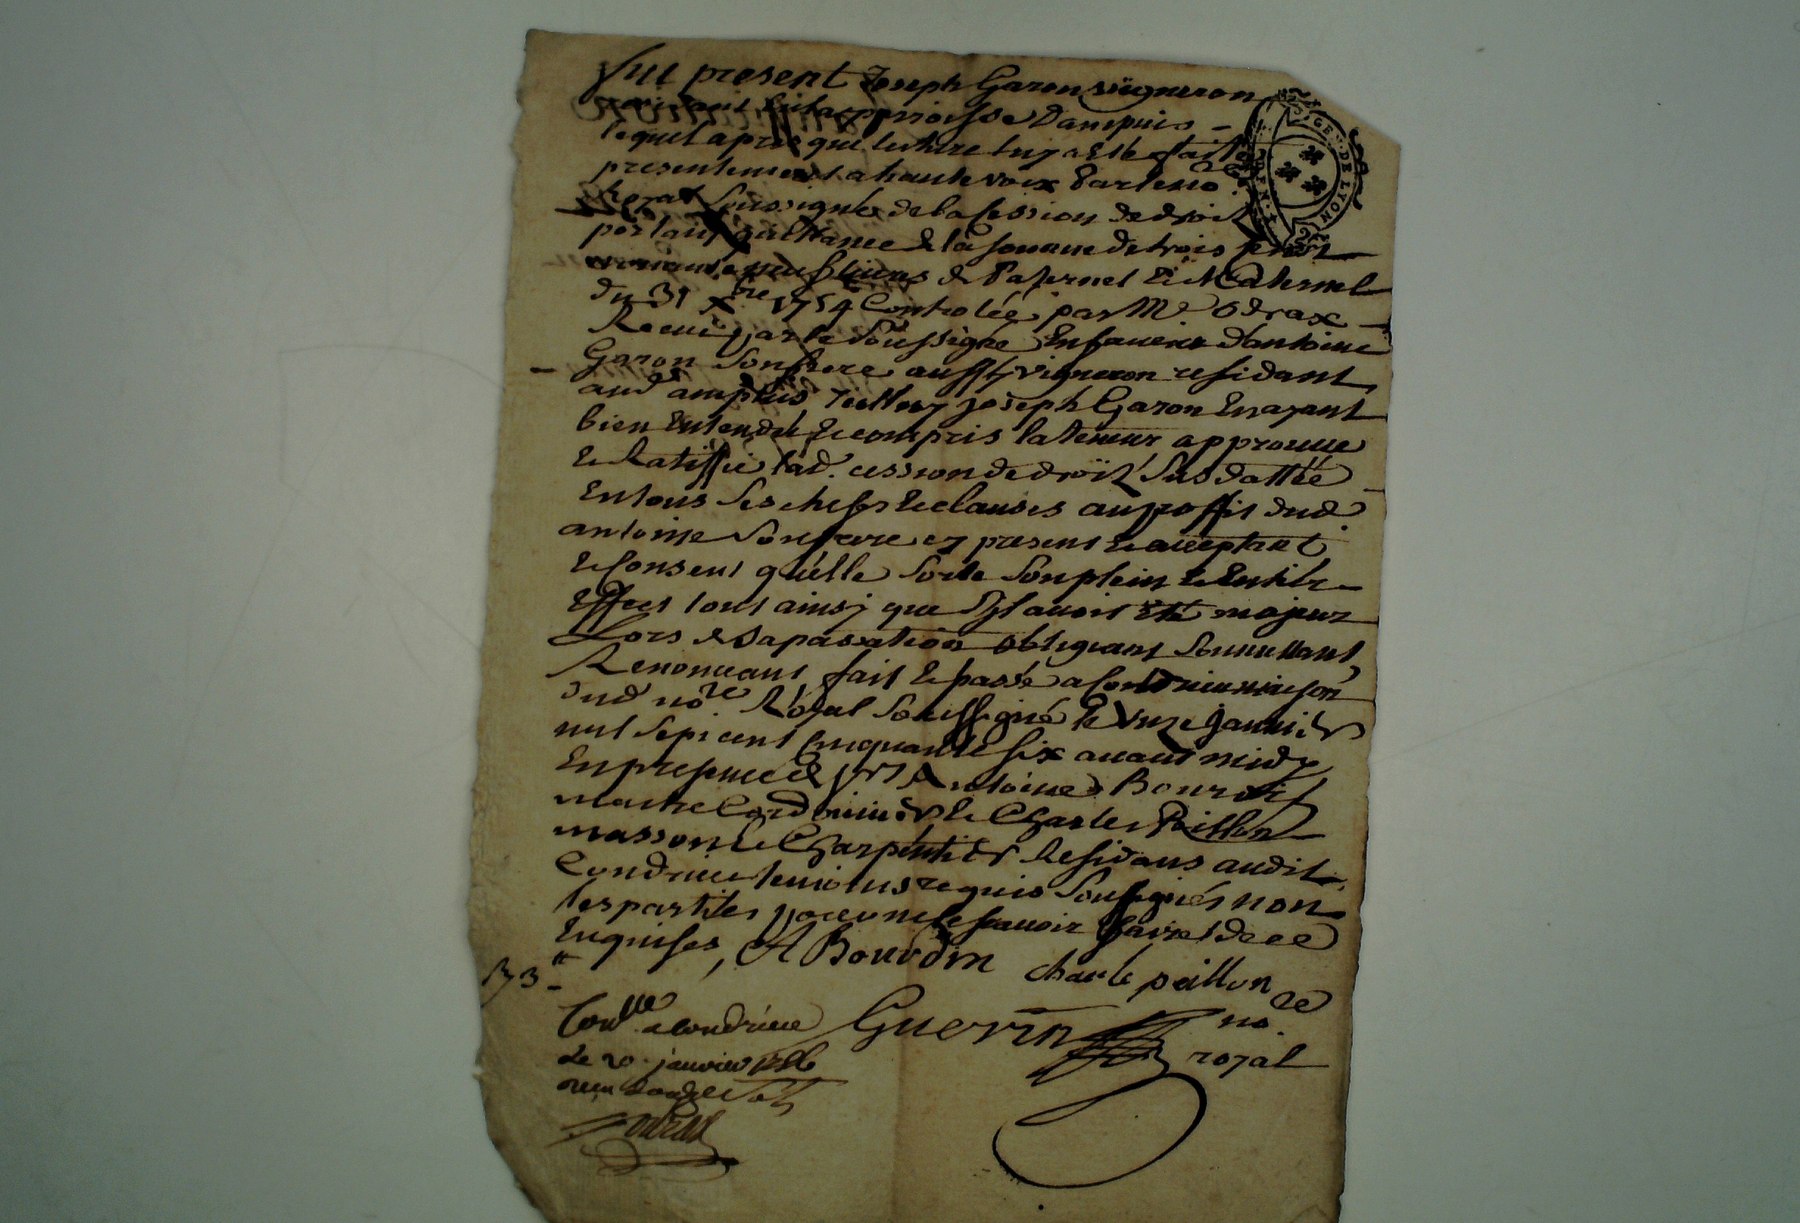 Fut present Joseph Garon vigneron
parroisse Dampuis
lequel apres que lecture luy a Esté faitte
presentement a haute voix Par le no.re
Royal soussigné de la Cession de droit
portant quittance de la somme de trois cent
neuf livres de Paternel Et Maternel
du 31 Xbre 1754 Controlée par Mr Odrax
Receue par le soussigné En faveur d'antoine
Garon son frere aussy vigneron residant
aud ampuis Icelluy Joseph Garon En ayant
bien Entendu Et compris la teneur approuve
Et Ratiffie lad. cession de droit sus dattée
En tous ses chefs Et clauses au proffit dud.
antoine son frere cy present Et acceptant
Et Consent qu'elle sorte son plein Et Entier
Effect tout ainsy que s'il avoit Esté majeur
Lors de sa passation obligeant soumettant
Renonceant fait Et passé a Condrieu maison
dud no.re Royal soussigné le Unze Janvier
mil sept cent Cinquante six avant midy
En presence de Antoine Bourdin
maitre Cordonnier Et Charles Peillon
masson Et Charpentier Residans audit
Condrieu temoins requis soussignés non
les parties pour ne le scavoir faire de ce
Enquises, A Bourdin charle peillon
173
Guerin no.re
royal
Con.lle a Condrieu
Le 20 janvier 1756
recu
odrax
GEN. DE LYON